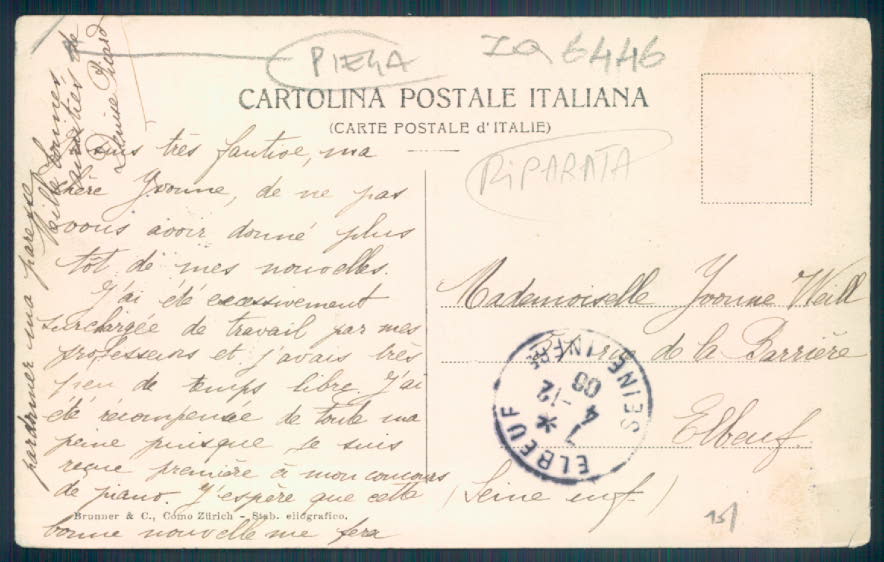 PIEGA
ZQ 6446
CARTOLINA POSTALE ITALIANA
(CARTE POSTALE d'ITALIE)
RiPARATA
suis très fautive, ma
chère Yvonne, de ne pas
vous avoir donné plus
tôt de mes nouvelles.
J'ai été excessivement
surchargée de travail par mes
professeurs et j'avais très
peu de temps libre. J'ai
été récompensée de toute ma
peine puisque je suis
reçue première à mon concours
de piano. J'espère que cette
Brunner & C., Como Zürich - Stab. eliografico.
bonne nouvelle me fera
pardonner ma paresse
Mille bonnes
amitiés de
Denise Picard
Mademoiselle Yvonne Weill
de la Barrière
Elbeuf.
(Seine inf.)
ELBEUF
SEINE INFRE
4 -12
08
15/